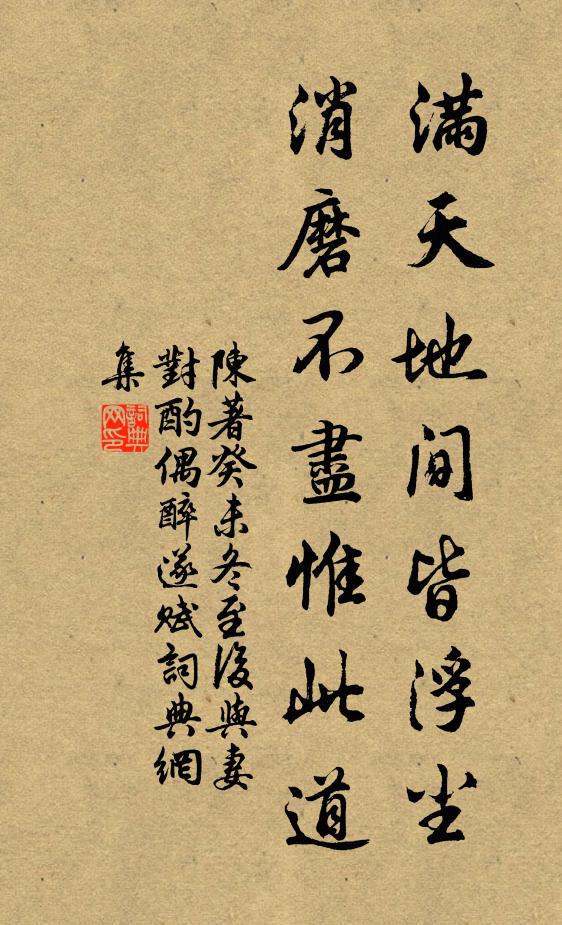 滿天地間皆浮尘
消磨不盡惟此道
陳著癸未冬至後與妻
對酌偶醉遂賦詞典網
集
詞典
网印